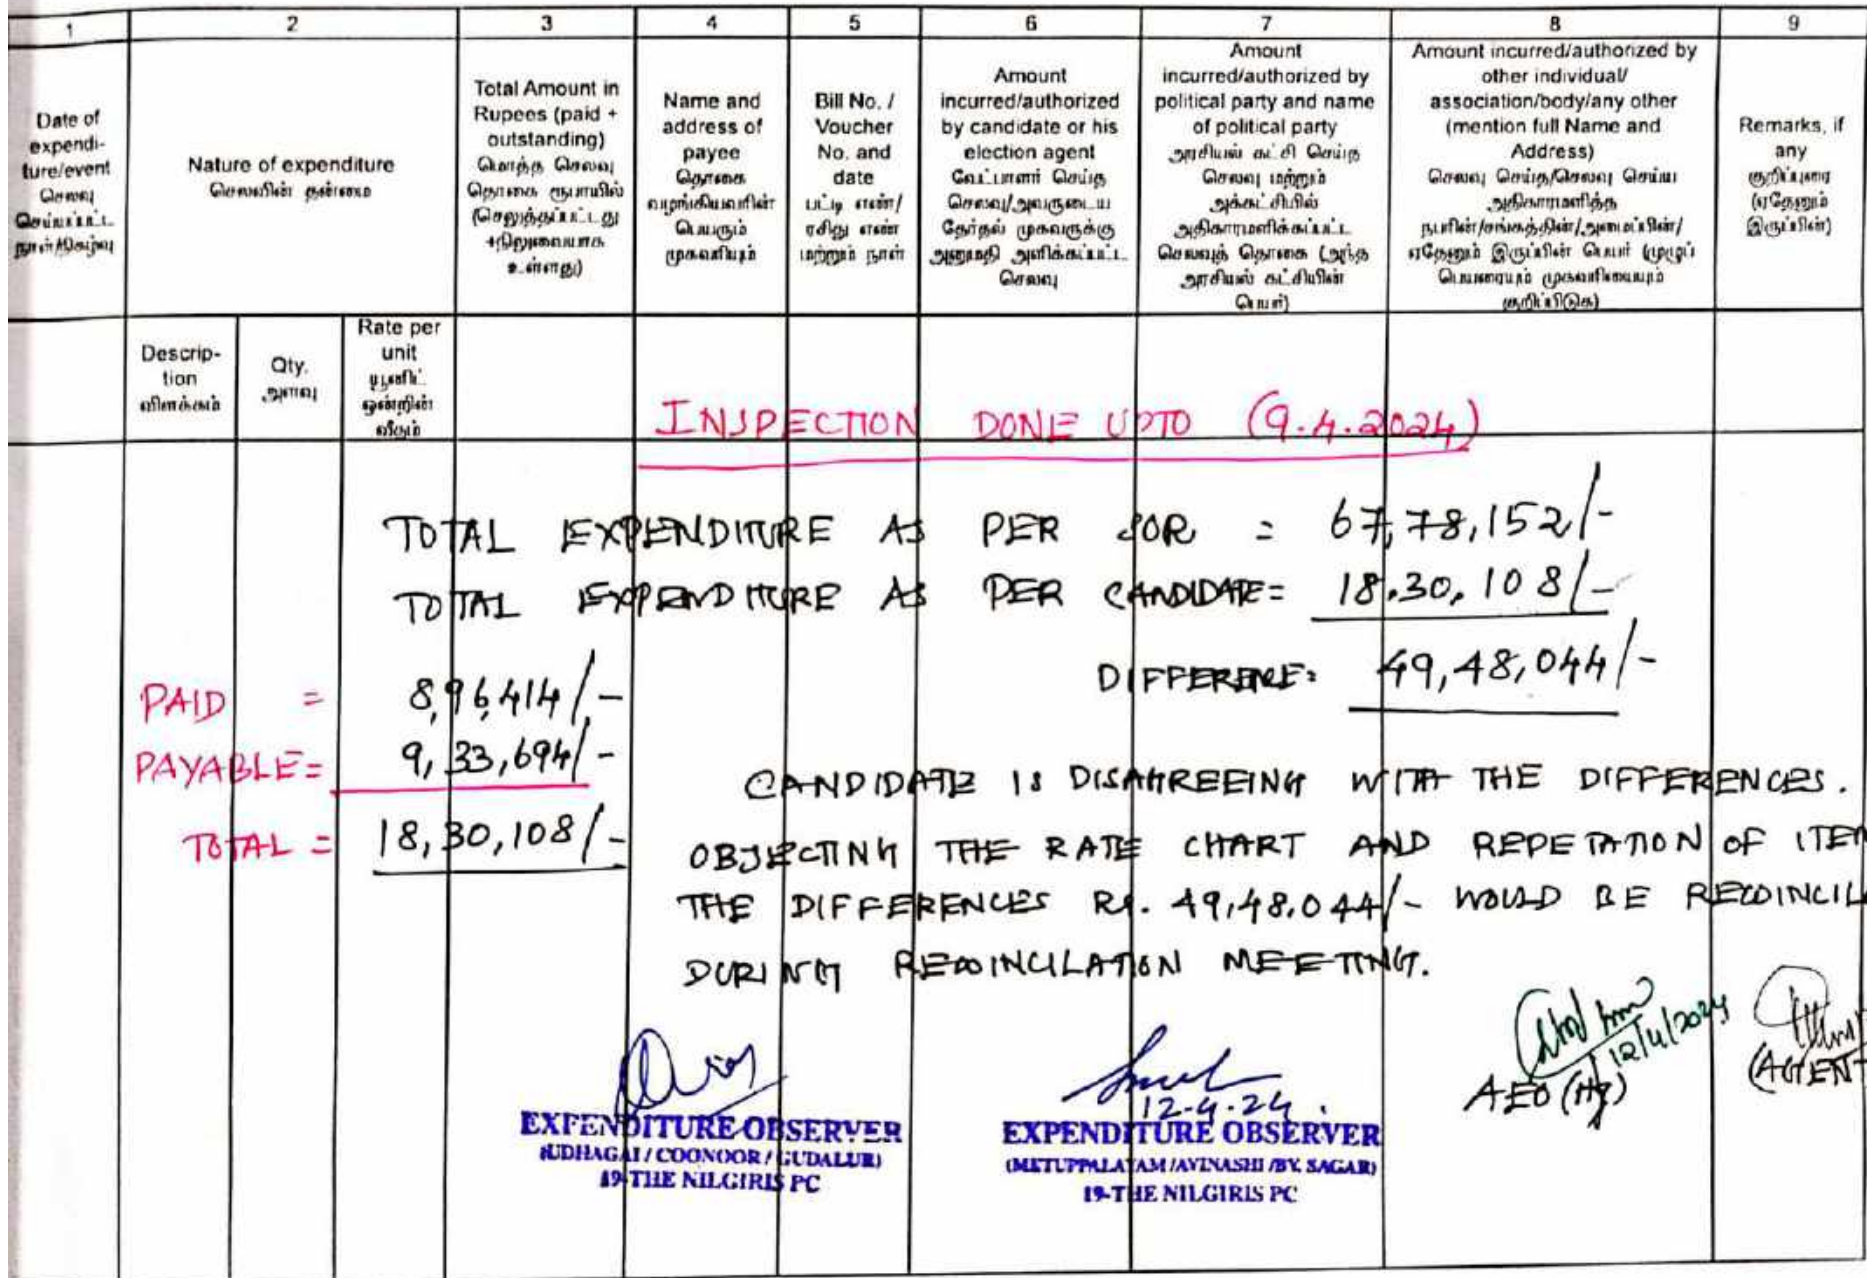 1 2 3 4 5 6 7 8 9
Date of
expendi-
ture/event
செலவு
செய்யப்பட்ட
நாள்/நிகழ்வு
Nature of expenditure
செலவின் தன்மை
Total Amount in
Rupees (paid +
outstanding)
மொத்த செலவு
தொகை ரூபாயில்
(செலுத்தப்பட்டது
+நிலுவையாக
உள்ளது)
Name and
address of
payee
தொகை
வழங்கியவரின்
பெயரும்
முகவரியும்
Bill No. /
Voucher
No. and
date
பட்டி எண்/
ரசிது எண்
மற்றும் நாள்
Amount
incurred/authorized
by candidate or his
election agent
வேட்பாளர் செய்த
செலவு/அவருடைய
தேர்தல் முகவருக்கு
அனுமதி அளிக்கப்பட்ட
செலவு
Amount
incurred/authorized by
political party and name
of political party
அரசியல் கட்சி செய்த
செலவு மற்றும்
அக்கட்சியில்
அதிகாரமளிக்கப்பட்ட
செலவுத் தொகை (அந்த
அரசியல் கட்சியின்
பெயர்)
Amount incurred/authorized by
other individual/
association/body/any other
(mention full Name and
Address)
செலவு செய்த/செலவு செய்ய
அதிகாரமளித்த
நபரின்/சங்கத்தின்/அமைப்பின்/
ஏதேனும் இருப்பின் பெயர் (முழுப்
பெயரையும் முகவரியையும்
குறிப்பிடுக)
Remarks, if
any
குறிப்புரை
(ஏதேனும்
இருப்பின்)
Descrip-
tion
விளக்கம்
Qty.
அளவு
Rate per
unit
யூனிட்
ஒன்றின்
வீதம்
INSPECTION DONE UPTO (9.4.2024)
TOTAL EXPENDITURE AS PER SOR = 67,78,152/-
TOTAL EXPENDITURE AS PER CANDIDATE= 18.30.108/-
DIFFERENCE= 49,48,044/-
PAID = 8,96,414/-
PAYABLE= 9,33,694/-
TOTAL = 18,30,108/-
CANDIDATE IS DISAGREEING WITH THE DIFFERENCES.
OBJECTING THE RATE CHART AND REPETATION OF ITEM
THE DIFFERENCES Rs. 49,48,044/- WOULD BE RECOINCIL
DURING RECOINCILATION MEETING.
12/4/2024
AEO (Hq)
(AGENT
EXPENDITURE OBSERVER
(UDHAGAI / COONOOR / GUDALUR)
19-THE NILGIRIS PC
12-4-24.
EXPENDITURE OBSERVER
(METUPPALAYAM /AVINASHI /BY. SAGAR)
19-THE NILGIRIS PC